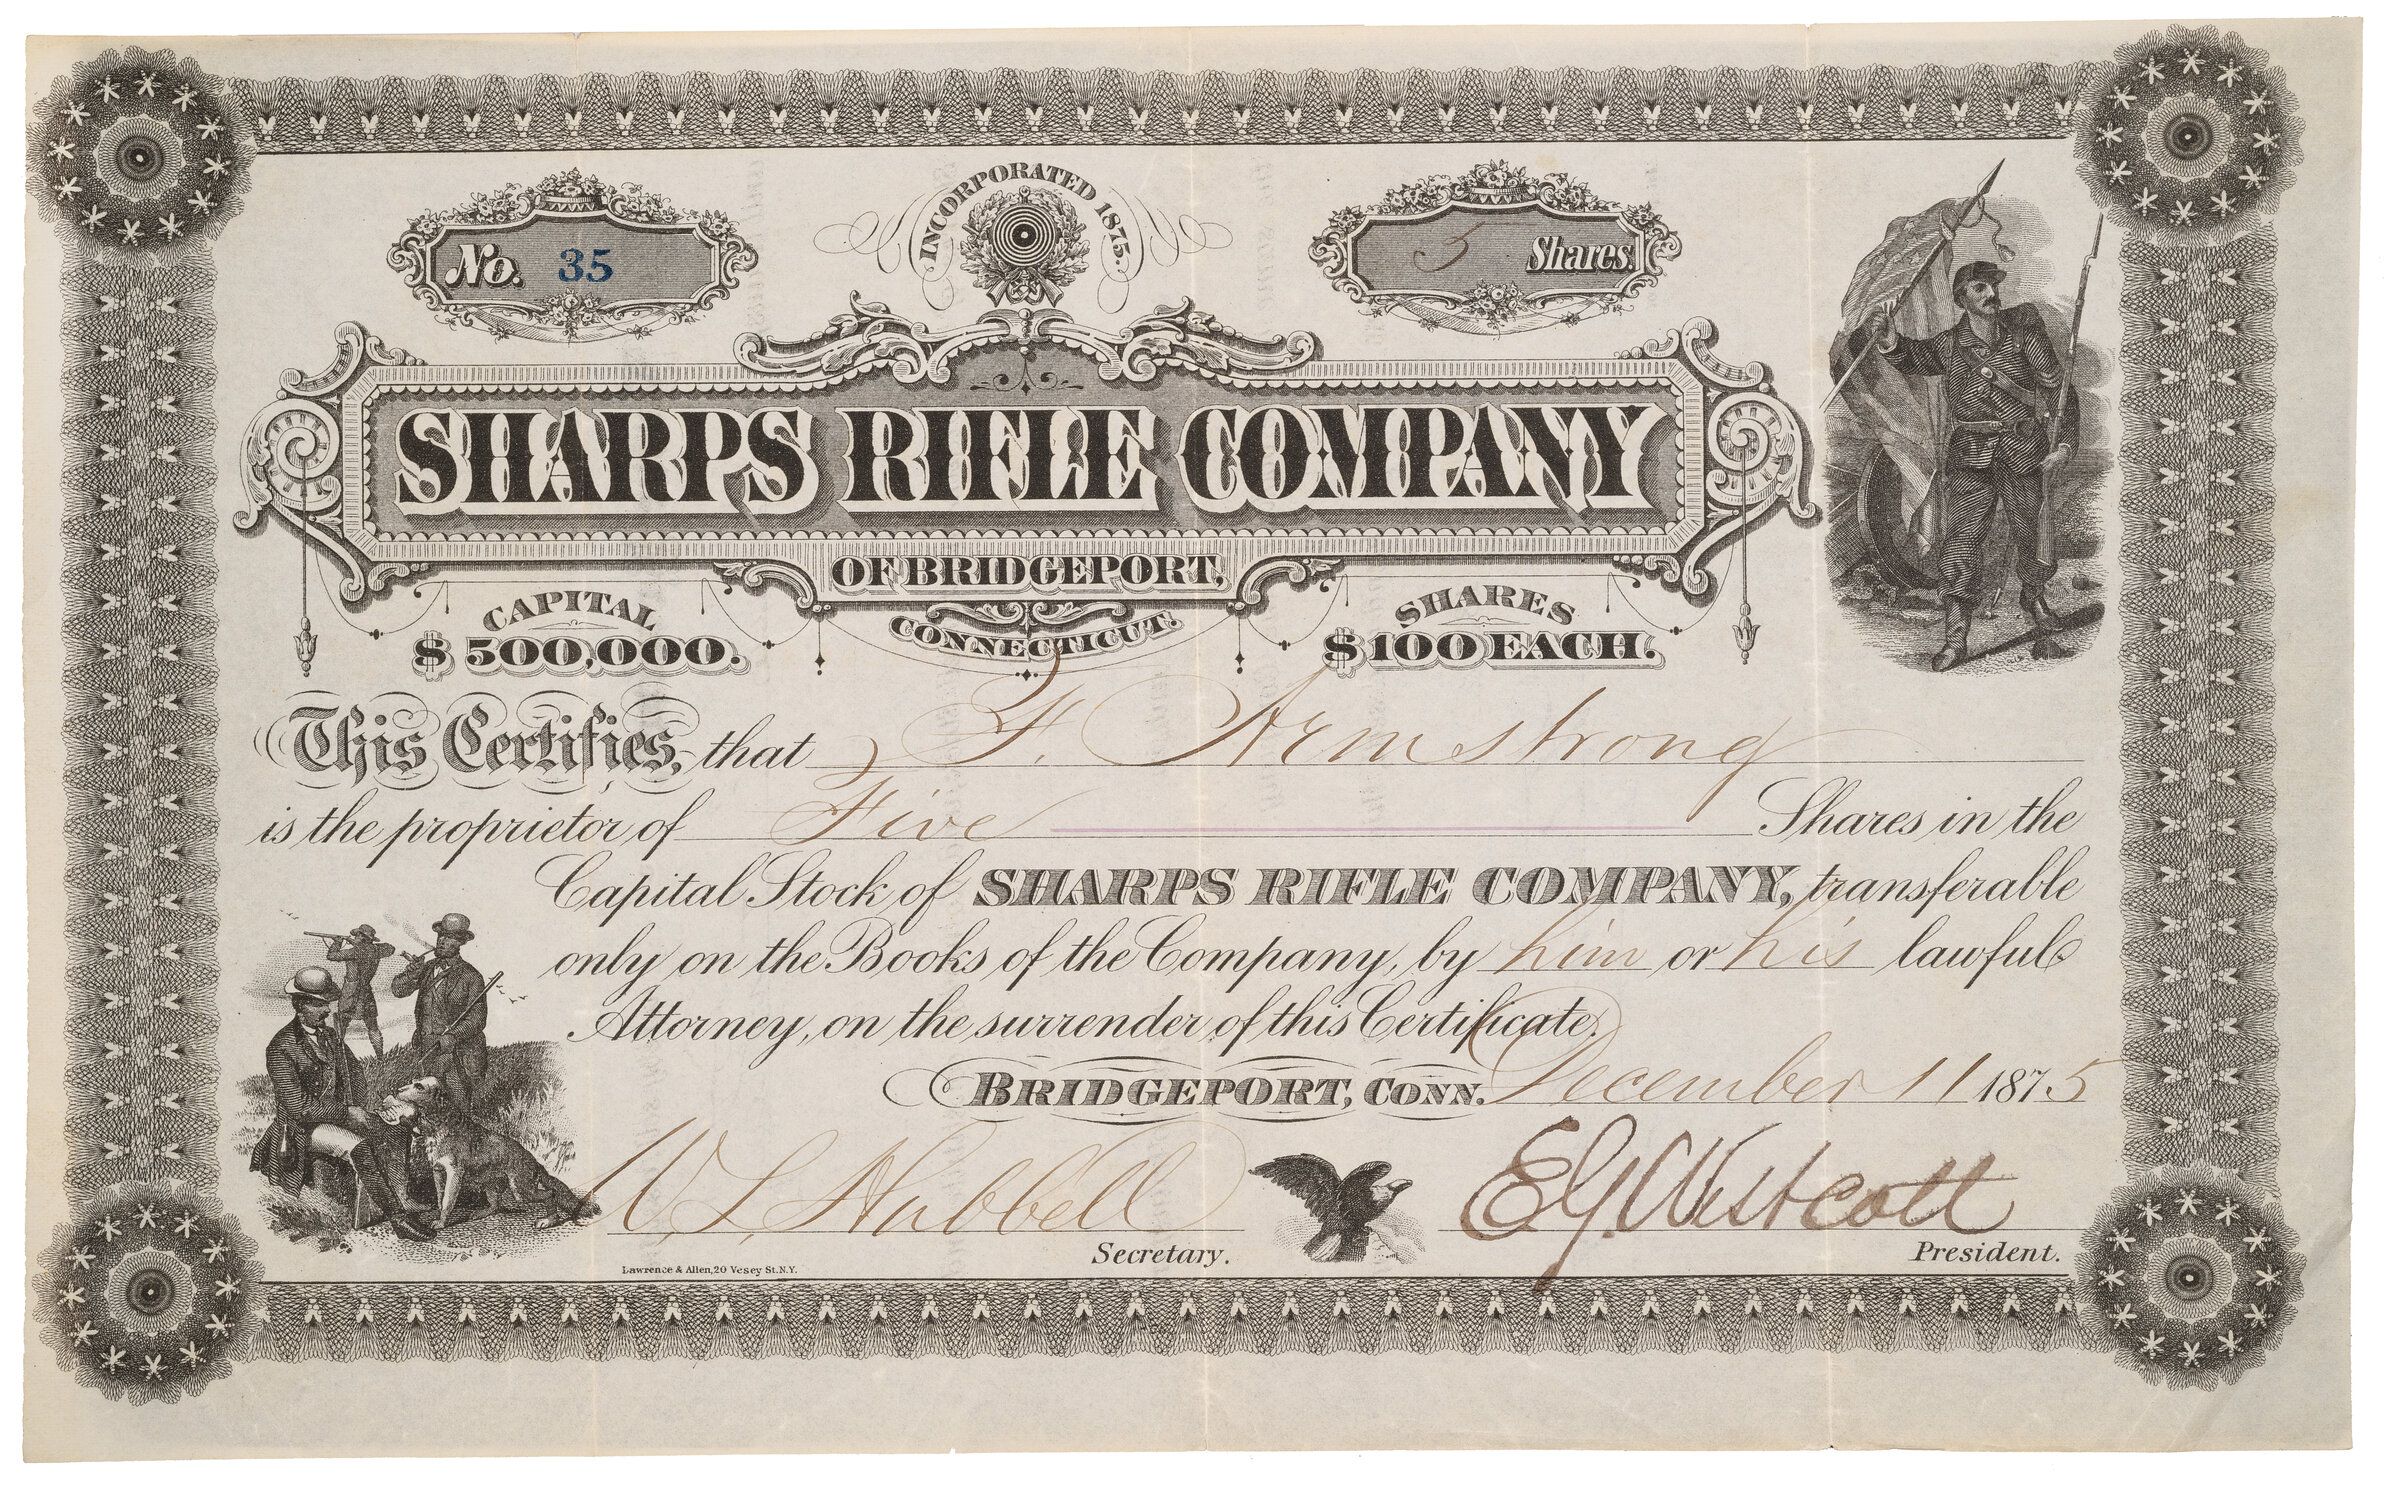 INCORPORATED 1875.
No. 35
5 Shares.
SHARPS RIFLE COMPANY
OF BRIDGEPORT,
CONNECTICUT.
CAPITAL
$500,000.
SHARES
$100 EACH.
This Certifies, that F. Armstrong
is the proprietor of Five Shares in the
Capital Stock of SHARPS RIFLE COMPANY, transferable
only on the Books of the Company, by him or his lawful
Attorney, on the surrender of this Certificate.
BRIDGEPORT, CONN. December 11 1875
W. S. Hubbell
Secretary.
E. G. Westcott
President.
Lawrence & Allen, 20 Vesey St. N.Y.